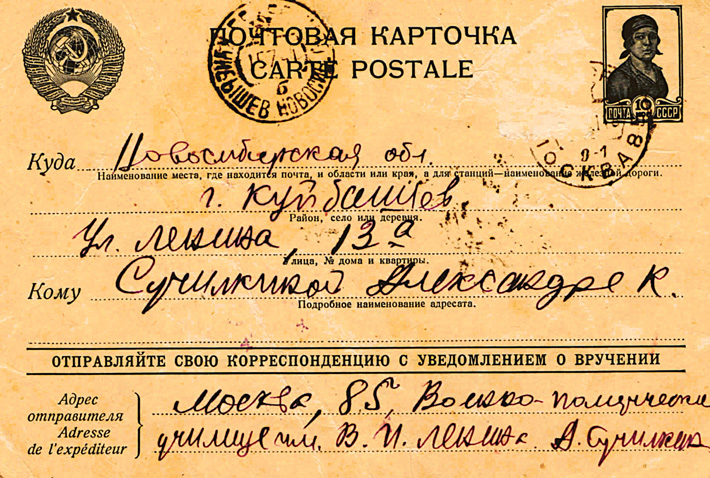 ПОЧТОВАЯ КАРТОЧКА
CARTE POSTALE
ПОЧТА 10 СССР
КУЙБЫШЕВ НОВОСИБ
МОСКВА 8
Куда Новосибирская обл.
Наименование места, где находится почта, и области или края, а для станций—наименование железной дороги.
г. Куйбышев
Район, село или деревня.
Ул. Ленина, 13а
Улица, № дома и квартиры.
Кому Сучилкиной Александре К.
Подробное наименование адресата.
ОТПРАВЛЯЙТЕ СВОЮ КОРРЕСПОНДЕНЦИЮ С УВЕДОМЛЕНИЕМ О ВРУЧЕНИИ
Адрес отправителя
Adresse de l'expéditeur
Москва, 85, Военно-политическ
училище им. В. И. Ленина А. Сучилкин